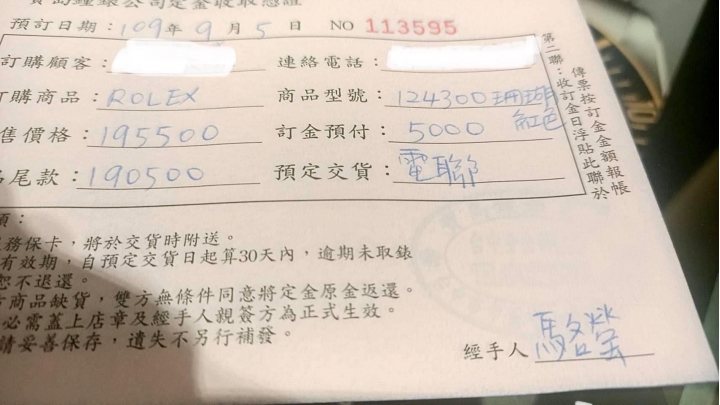 寶島鐘錶公司定金收取憑證
預訂日期：109年9月5日 NO 113595
訂購顧客： 連絡電話：
訂購商品：ROLEX 商品型號：124300 珊瑚紅色
售價格：195500 訂金預付：5000
尾款：190500 預定交貨：電聯
第二聯：收訂金日浮貼此聯於
傳票按訂金金額報帳
項：
務保卡，將於交貨時附送。
有效期，自預定交貨日起算30天內，逾期未取錶
恕不退還。
商品缺貨，雙方無條件同意將定金原金返還。
必需蓋上店章及經手人親簽方為正式生效。
請妥善保存，遺失不另行補發。
經手人